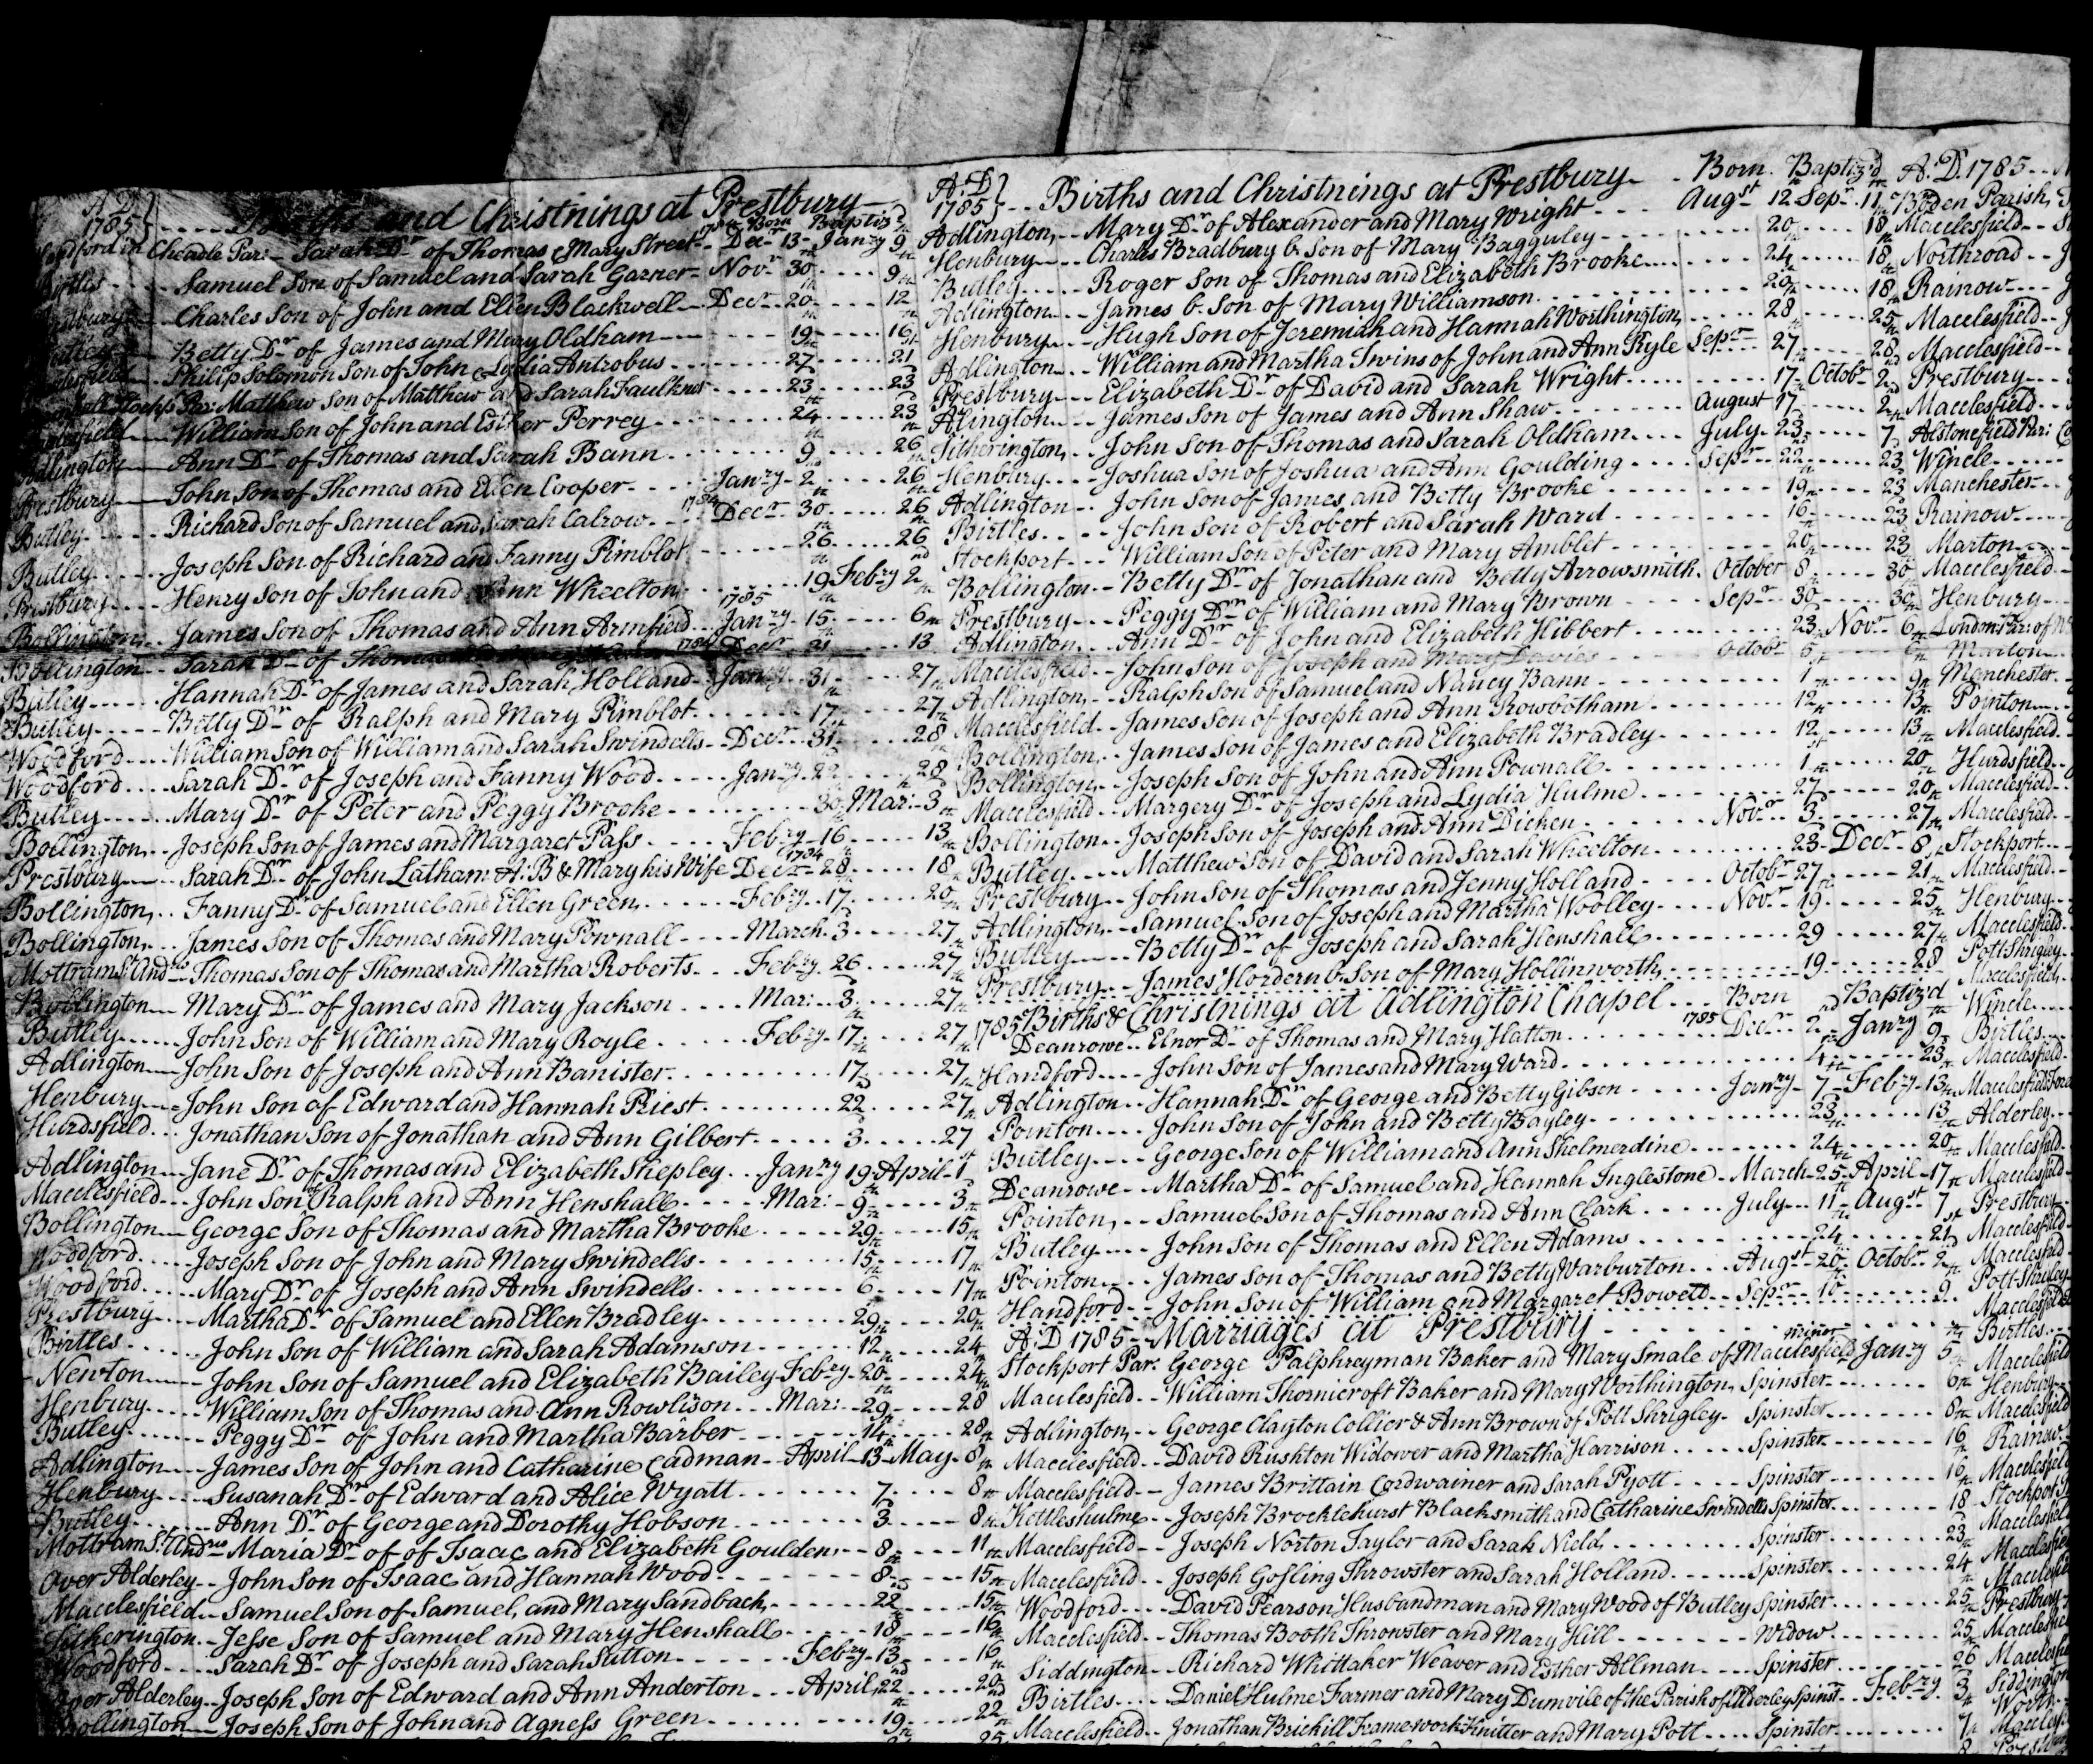 A.D. 1785 Births and Christnings at Prestbury
1784 Born Baptiz'd
Handford in Cheadle Par: Sarah Dr. of Thomas & Mary Street Decr. 13 Janry 9
Birtles Samuel Son of Samuel and Sarah Garner Novr. 30 9
Prestbury Charles Son of John and Ellen Blackwell Decr. 20 12
Butley Betty Dr. of James and Mary Oldham 19 16
Macclesfield Philip Solomon Son of John & Lydia Antrobus 27 21
Stockp. Par: Matthew Son of Matthew and Sarah Faulkner 23 23
Macclesfield William Son of John and Esther Perrey 24 23
Adlington Ann Dr. of Thomas and Sarah Bann 9 26
Prestbury John Son of Thomas and Ellen Cooper Janry 2 26
Butley Richard Son of Samuel and Sarah Calrow 1784 Decr. 30 26
Butley Joseph Son of Richard and Fanny Pimblot 26 26
Prestbury Henry Son of John and Ann Wheelton 19 Febry 2
Bollington James Son of Thomas and Ann Armfield 1785 Janry 15 6
Bollington Sarah Dr. of Thomas 1784 Decr. 21 13
Butley Hannah Dr. of James and Sarah Holland Janry 31 27
Butley Betty Dr. of Ralph and Mary Pimblot 17 27
Woodford William Son of William and Sarah Swindells Decr. 31 28
Woodford Sarah Dr. of Joseph and Fanny Wood Janry 22 28
Butley Mary Dr. of Peter and Peggy Brooke 30 Mar: 3
Bollington Joseph Son of James and Margaret Pass Febry 16 13
Prestbury Sarah Dr. of John Latham A:B & Mary his Wife 1784 Decr. 28 18
Bollington Fanny Dr. of Samuel and Ellen Green Febry 17 20
Bollington James Son of Thomas and Mary Pownall March 3 27
Mottram St. Andws Thomas Son of Thomas and Martha Roberts Febry 26 27
Bollington Mary Dr. of James and Mary Jackson Mar: 3 27
Butley John Son of William and Mary Royle Febry 17 27
Adlington John Son of Joseph and Ann Banister 17 27
Henbury John Son of Edward and Hannah Priest 22 27
Hurdsfield Jonathan Son of Jonathan and Ann Gilbert 3 27
Adlington Jane Dr. of Thomas and Elizabeth Shepley Janry 19 April 1
Macclesfield John Son of Ralph and Ann Henshall Mar: 9 3
Bollington George Son of Thomas and Martha Brooke 29 15
Woodford Joseph Son of John and Mary Swindells 15 17
Woodford Mary Dr. of Joseph and Ann Swindells 6 17
Prestbury Martha Dr. of Samuel and Ellen Bradley 29 20
Birtles John Son of William and Sarah Adamson 12 24
Newton John Son of Samuel and Elizabeth Bailey Febry 20 24
Henbury William Son of Thomas and Ann Rowlison Mar: 29 28
Butley Peggy Dr. of John and Martha Barber 14 28
Adlington James Son of John and Catharine Cadman April 13 May 8
Henbury Susanah Dr. of Edward and Alice Wyatt 7 8
Butley Ann Dr. of George and Dorothy Hobson 3 8
Mottram St. Andws Maria Dr. of of Isaac and Elizabeth Goulden 8 11
Over Alderley John Son of Isaac and Hannah Wood 8 15
Macclesfield Samuel Son of Samuel and Mary Sandbach 22 15
Titherington Jesse Son of Samuel and Mary Henshall 18 16
Woodford Sarah Dr. of Joseph and Sarah Sutton Febry 13 16
Over Alderley Joseph Son of Edward and Ann Anderton April 22 22
Bollington Joseph Son of John and Agness Green 19 22
A:D 1785 Births and Christnings at Prestbury Born Baptiz'd
Adlington Mary Dr. of Alexander and Mary Wright Augst 12 Sepr. 11
Henbury Charles Bradbury b. Son of Mary Bagguley 20 18
Butley Roger Son of Thomas and Elizabeth Brooke 24 18
Adlington James b. Son of Mary Williamson 20 18
Henbury Hugh Son of Jeremiah and Hannah Worthington 28 25
Adlington William and Martha Twins of John and Ann Ryle Sepr. 27 28
Prestbury Elizabeth Dr. of David and Sarah Wright 17 Octobr 2
Alington James Son of James and Ann Shaw August 17 2
Titherington John Son of Thomas and Sarah Oldham July 23 7
Henbury Joshua Son of Joshua and Ann Goulding Sepr. 22 23
Adlington John Son of James and Betty Brooke 19 23
Birtles John Son of Robert and Sarah Ward 16 23
Stockport William Son of Peter and Mary Amblet 20 23
Bollington Betty Dr. of Jonathan and Betty Arrowsmith October 8 30
Prestbury Peggy Dr. of William and Mary Brown Sepr. 30 30
Adlington Ann Dr. of John and Elizabeth Hibbert 23 Novr. 6
Macclesfield John Son of Joseph and Mary Davies Octobr 6 6
Adlington Ralph Son of Samuel and Nancy Bann 1 9
Macclesfield James Son of Joseph and Ann Rowbotham 12 13
Bollington James Son of James and Elizabeth Bradley 12 13
Bollington Joseph Son of John and Ann Pownall 1 20
Macclesfield Margery Dr. of Joseph and Lydia Hulme 27 20
Bollington Joseph Son of Joseph and Ann Dicken Novr. 3 27
Butley Matthew Son of David and Sarah Wheelton 23 Decr. 8
Prestbury John Son of Thomas and Jenny Holland Octobr 27 21
Adlington Samuel Son of Joseph and Martha Woolley Novr. 19 25
Butley Betty Dr. of Joseph and Sarah Henshall 29 27
Prestbury James Hordern b. Son of Mary Hollinworth 19 28
1785 Births & Christnings at Adlington Chapel Born Baptiz'd
Deanrowe Elnor Dr. of Thomas and Mary Hatton 1785 Decr. 2 Janry 9
Handford John Son of James and Mary Ward 4 23
Adlington Hannah Dr. of George and Betty Gibson Janry 7 Febry 13
Pointon John Son of John and Betty Bayley 23 13
Butley George Son of William and Ann Shelmerdine 24 20
Deanrowe Martha Dr. of Samuel and Hannah Inglestone March 25 April 17
Pointon Samuel Son of Thomas and Ann Clark July 11 Augst 7
Butley John Son of Thomas and Ellen Adams 24 21
Pointon James Son of Thomas and Betty Warburton Augst 20 Octobr 2
Handford John Son of William and Margaret Bowett Sepr. 10 9
A:D 1785 Marriages at Prestbury
Stockport Par: George Palphreyman Baker and Mary Smale of Macclesfield minor Janry 5
Macclesfield William Thornicroft Baker and Mary Worthington Spinster 6
Adlington George Clayton Collier & Ann Brown of Pott Shrigley Spinster 8
Macclesfield David Rushton Widower and Martha Harrison Spinster 16
Macclesfield James Brittain Cordwainer and Sarah Pyott Spinster 16
Kettleshulme Joseph Brocklehurst Blacksmith and Catharine Swindells Spinster 18
Macclesfield Joseph Norton Taylor and Sarah Nield Spinster 23
Macclesfield Joseph Gosling Throwster and Sarah Holland Spinster 24
Woodford David Pearson Husbandman and Mary Wood of Butley Spinster 25
Macclesfield Thomas Booth Throwster and Mary Hill Widow 25
Siddington Richard Whittaker Weaver and Esther Allman Spinster 26
Birtles Daniel Hulme Farmer and Mary Dumvile of the Parish of Alderley Spinst. Febry 3
Macclesfield Jonathan Brickill Framework Knitter and Mary Pott Spinster 7
A:D. 1785
Boden Parish
Macclesfield
Northroad
Rainow
Macclesfield
Macclesfield
Prestbury
Macclesfield
Alstonefield Par:
Wincle
Manchester
Rainow
Marton
Macclesfield
Henbury
London Par: of
Marton
Manchester
Pointon
Macclesfield
Hurdsfield
Macclesfield
Macclesfield
Stockport
Macclesfield
Henbury
Macclesfield
Pott Shrigley
Macclesfield
Wincle
Birtles
Macclesfield
Macclesfield Fore
Alderley
Macclesfield
Macclesfield
Prestbury
Macclesfield
Macclesfield
Pott Shrigley
Macclesfield
Birtles
Macclesfield
Henbury
Macclesfield
Rainow
Macclesfield
Stockport
Macclesfield
Macclesfield
Macclesfield
Prestbury
Macclesfield
Macclesfield
Siddington